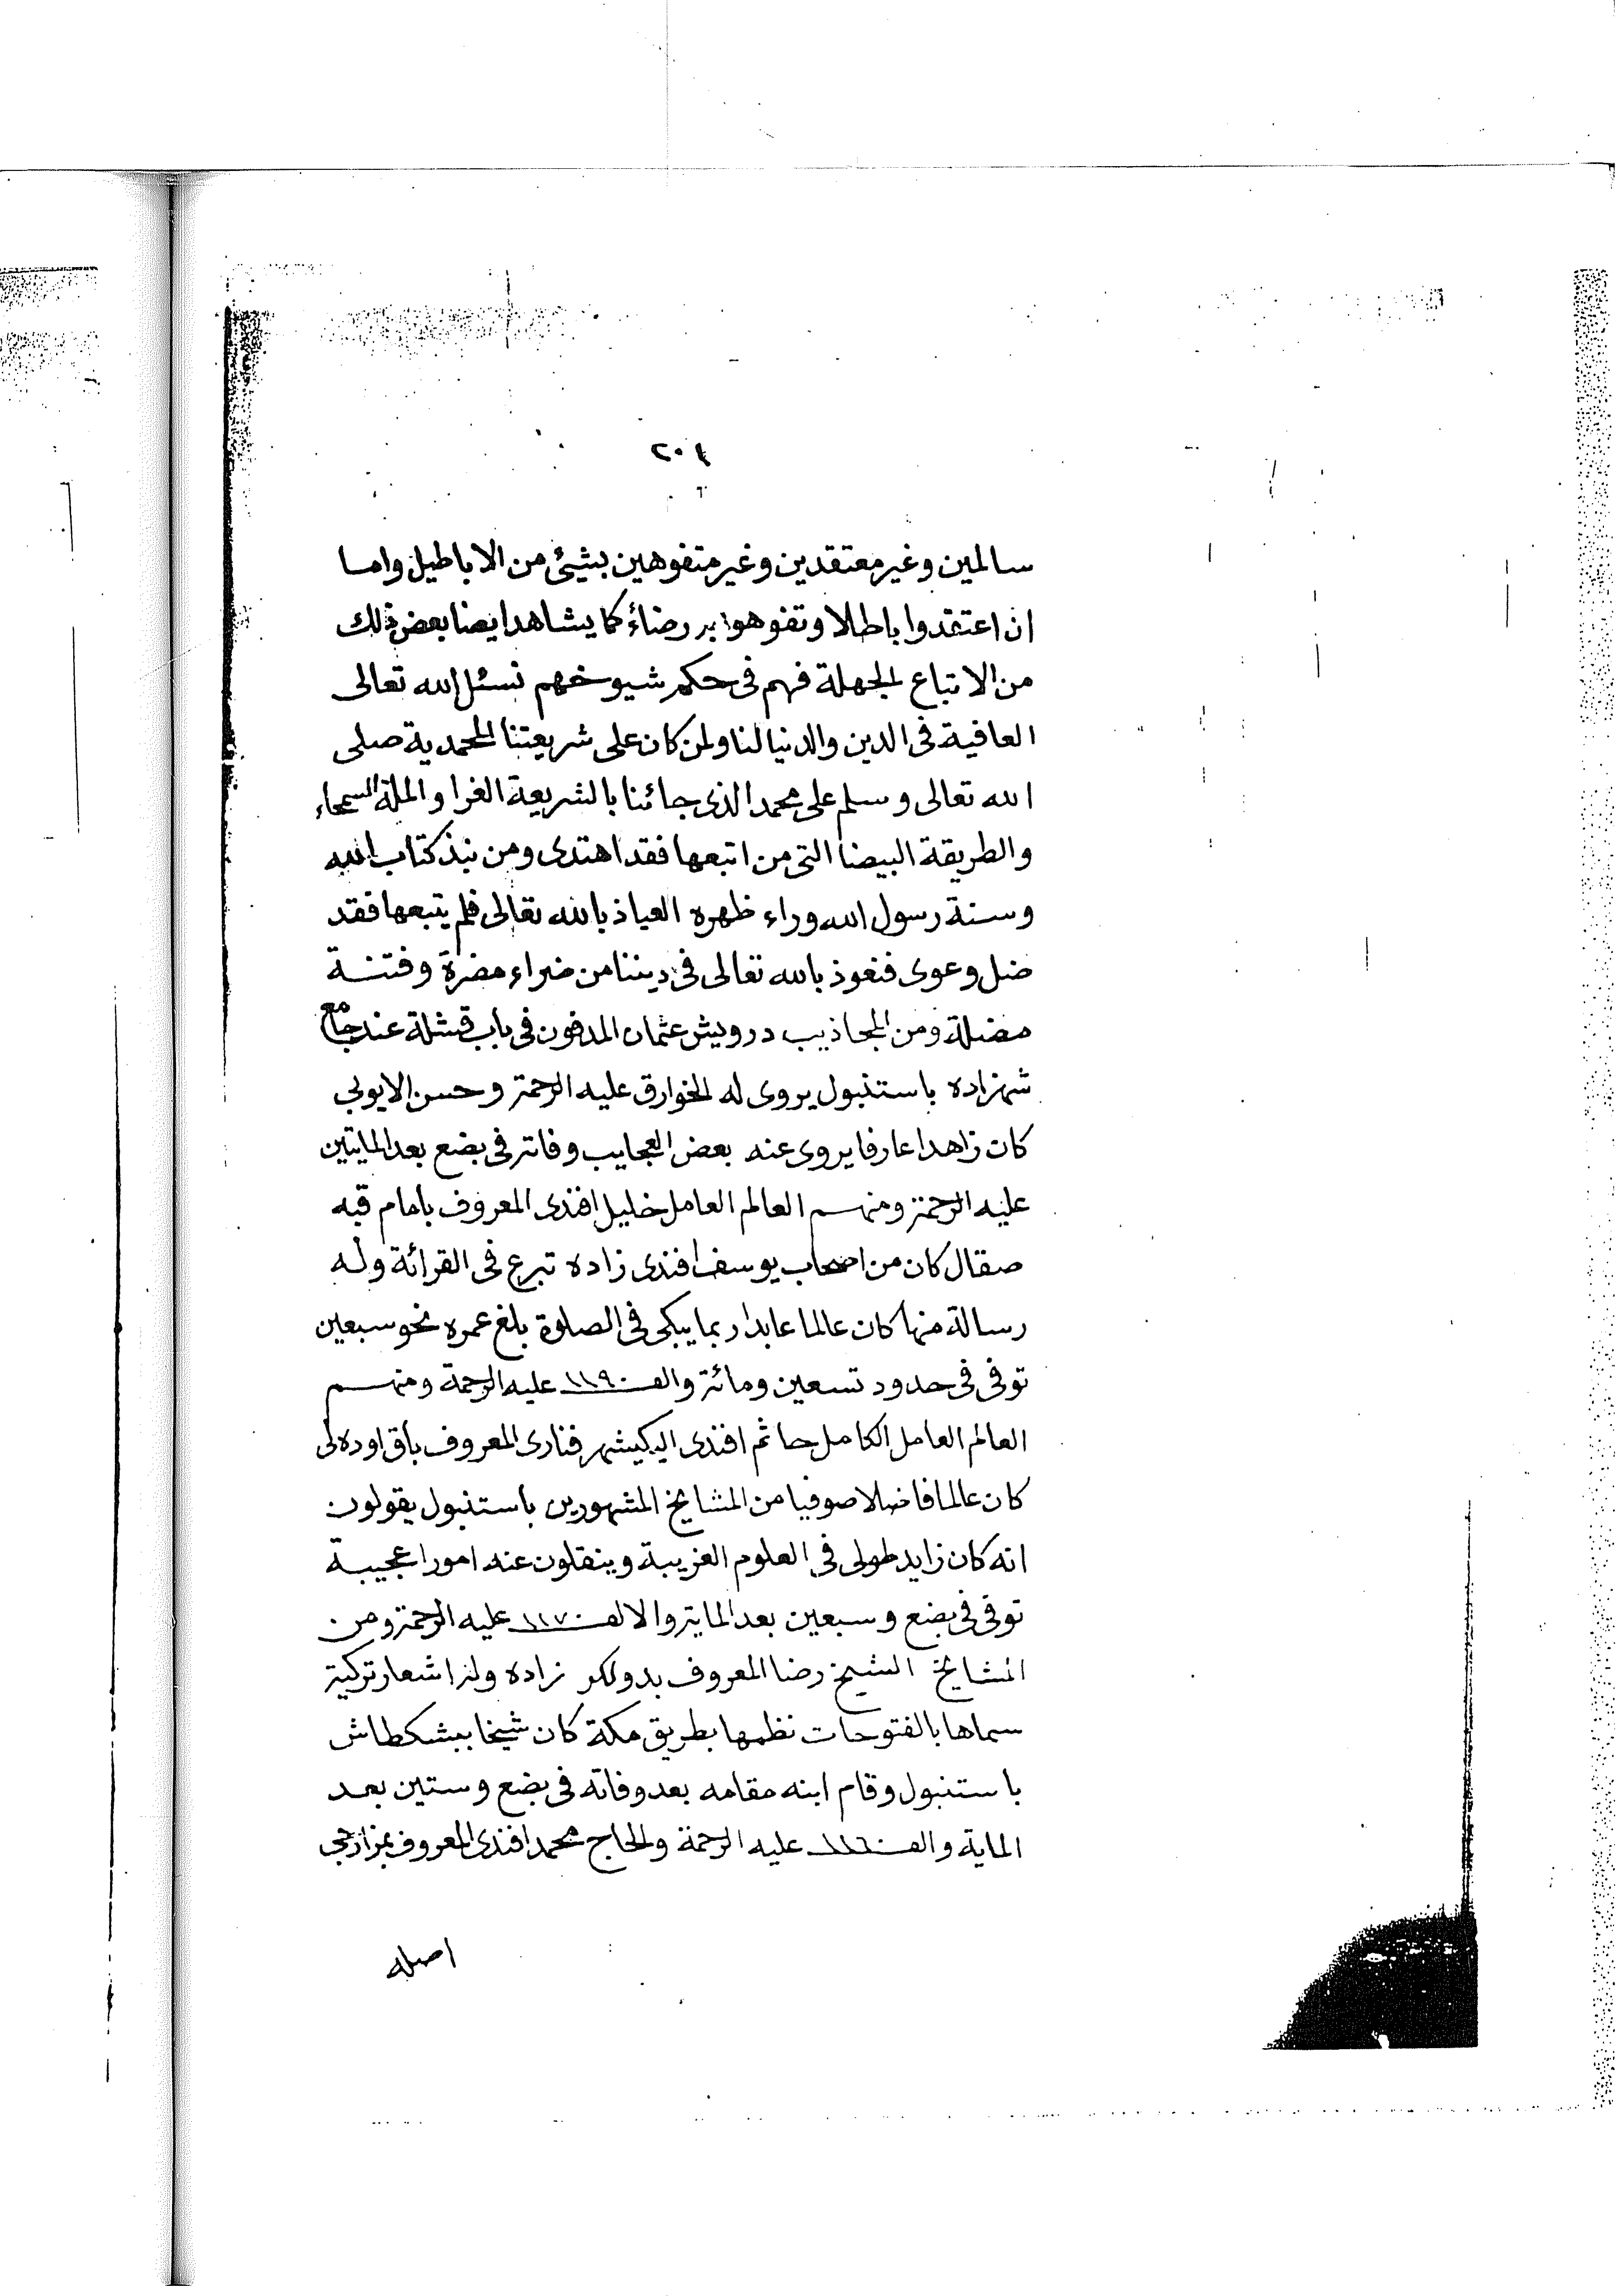 سالمين وغير معتقدين وغير متفوهين بشيئ من الاباطيل واما
ان اعتقدوا باطلا وتفوهوا به رضاء كما يشاهد ايضا بعض ذلك
من الاتباع الجهلة فهم فى حكم شيوخهم نسئل الله تعالى
العافية فى الدين والدنيا لنا ولمن كان على شريعتنا المحمدية صلى
الله تعالى وسلم على محمد الذى جائنا بالشريعة الغرا والملة السمحاء
والطريقة البيضا التى من اتبعها فقد اهتدى ومن نبذ كتاب الله
وسنة رسول الله وراء ظهره العياذ بالله تعالى فلم يتبعها فقد
ضل وعوى فنعوذ بالله تعالى فى ديننا من ضراء مضرة وفتنة
مضلة ومن المجاذيب درويش عثمان المدفون فى باب قشلة عند جامع
شهزاده باستنبول يروى له الخوارق عليه الرحمة وحسن الايوبى
كان زاهدا عارفا يروى عنه بعض العجايب وفاته فى بضع بعد المايتين
عليه الرحمة ومنهم العالم العامل خليل افندى المعروف بامام قبه
صقال كان من اصحاب يوسف افندى زاده تبرع فى القرائة وله
رسالة منها كان عالما عابدا ربما يبكى فى الصلوة بلغ عمره نحو سبعين
توفى فى حدود تسعين ومائة والف ١١٩٠ عليه الرحمة ومنهم
العالم العامل الكامل حاتم افندى اليكيشهر فنارى المعروف باق اوده لى
كان عالما فاضلا صوفيا من المشايخ المشهورين باستنبول يقولون
انه كان زايد طولى فى العلوم الغريبة وينقلون عنه امورا عجيبة
توفى فى بضع وسبعين بعد الماية والالف ١١٧٠ عليه الرحمة ومن
المشايخ الشيخ رضا المعروف بدولكر زاده وله اشعار تركية
سماها بالفتوحات نظمها بطريق مكة كان شيخا ببشكطاش
باستنبول وقام ابنه مقامه بعد وفاته فى بضع وستين بعد
الماية والف ١١٦٠ عليه الرحمة والحاج محمد افندى المعروف
اصله